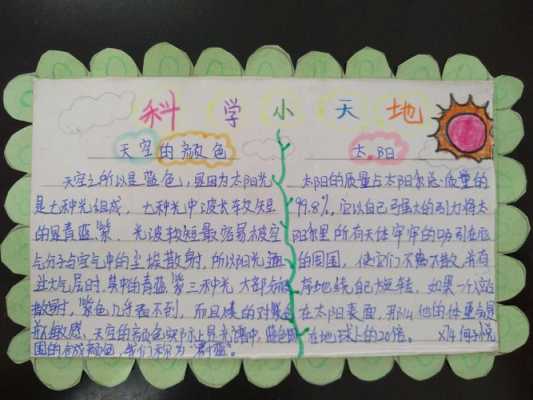 科学小天地
天空的颜色
天空之所以是蓝色,是因为太阳光
是七种光组成,七种光中波长较短
的是青蓝紫,光波较短最容易被空
气分子与空气中的尘埃散射,所以阳光通
过大气层时,其中的青蓝紫三种光大部分被
散射,紫色几乎看不到,而且
敏感,天空的颜色实际上是光谱中蓝色
的合成颜色,我们称为
太阳
太阳的质量占太阳系总质量的
99.8%,它以自己强大的引力将太
阳系里所有天体牢牢的吸引在它
的周围,使它们不离不散,井有
序地绕自己旋转,如果一个人站
在太阳表面,那么他的体重会是
在地球上的20倍。